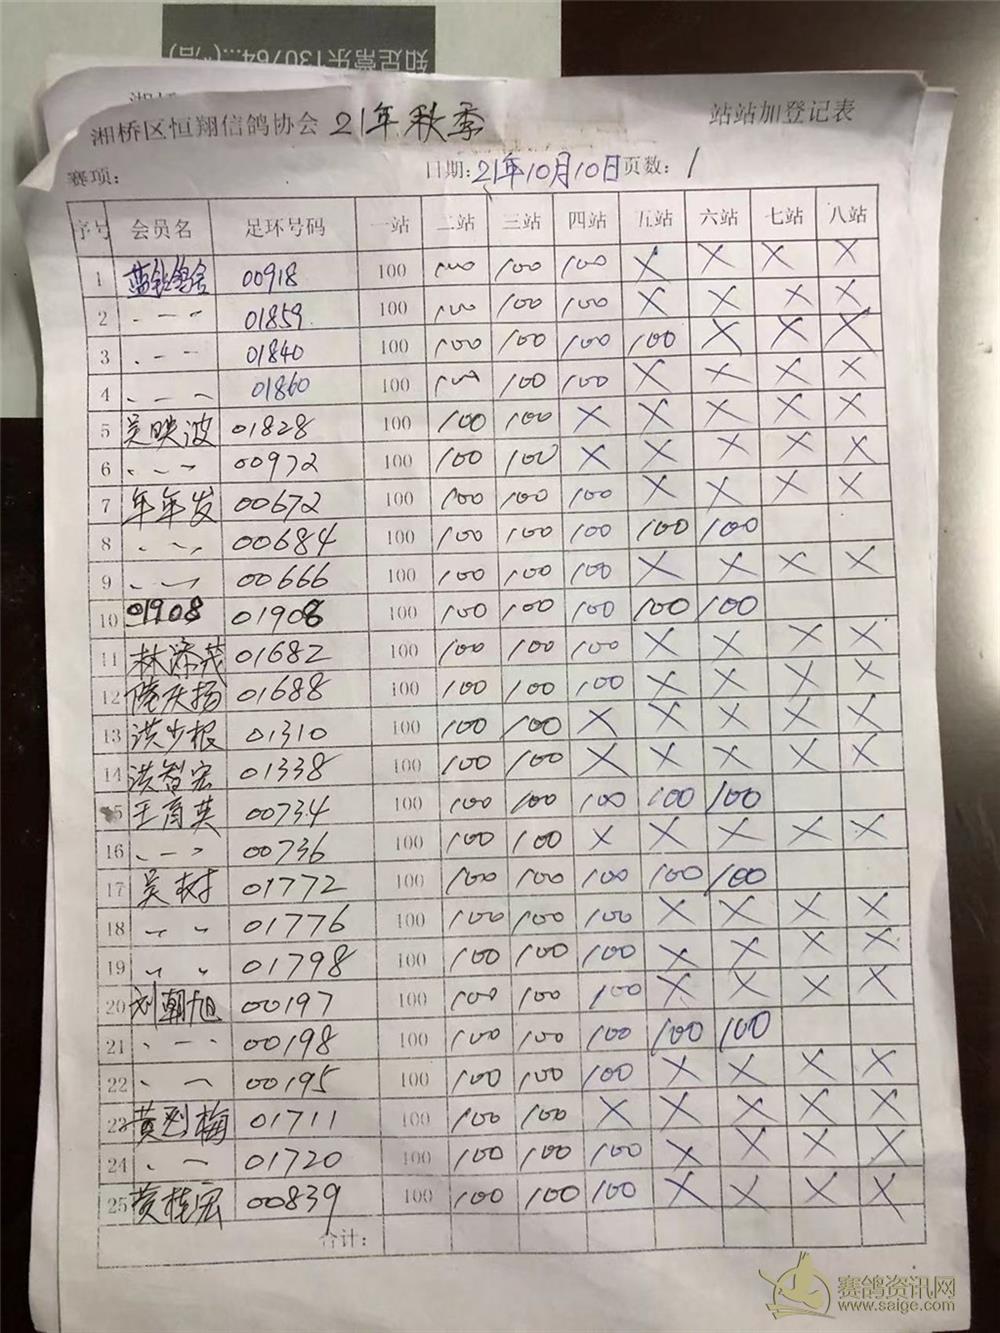 知足常乐130764...(“洁)
湘桥
湘桥区恒翔信鸽协会 21年秋季 站站加登记表
赛项: 日期: 21年10月10日 页数: 1
序号 会员名 足环号码 一站 二站 三站 四站 五站 六站 七站 八站
1 00918 100 100 100 100 X X X X
2 〃 01859 100 100 100 100 X X X X
3 〃 01840 100 100 100 100 100 X X X
4 〃 01860 100 100 100 100 X X X X
5 吴映波 01828 100 100 100 X X X X X
6 〃 00972 100 100 100 X X X X X
7 年年发 00672 100 100 100 100 X X X X
8 〃 00684 100 100 100 100 100 100
9 〃 00666 100 100 100 100 X X X X
10 01908 01908 100 100 100 100 100 100
11 林添茂 01682 100 100 100 100 X X X X
12 陈庆扬 01688 100 100 100 100 X X X X
13 洪少根 01310 100 100 100 X X X X X
14 洪智宏 01338 100 100 100 X X X X X
15 王育英 00734 100 100 100 100 100 100
16 〃 00736 100 100 100 X X X X X
17 吴树 01772 100 100 100 100 100 100
18 〃 01776 100 100 100 100 X X X X
19 〃 01798 100 100 100 100 X X X X
20 刘朝旭 00197 100 100 100 100 X X X X
21 〃 00198 100 100 100 100 100 100
22 〃 00195 100 100 100 100 X X X X
23 黄烈梅 01711 100 100 100 X X X X X
24 〃 01720 100 100 100 100 X X X X
25 黄桂宏 00839 100 100 100 100 X X X X
合计:
赛鸽资讯网
www.saige.com